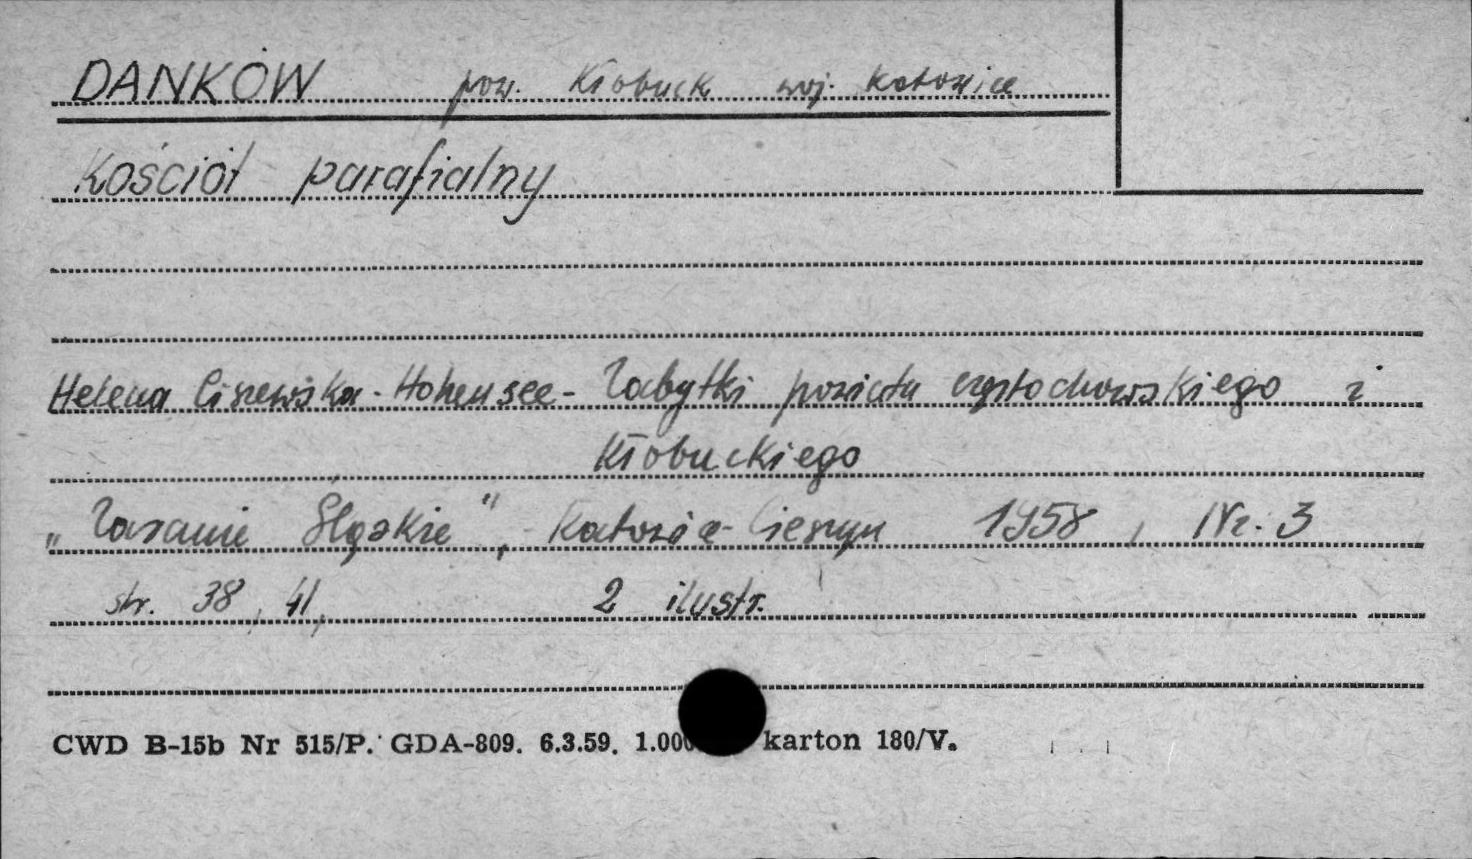 DANKÓW pow. Kłobuck woj. Katowice
Kościół parafialny
Helena Ciszewska-Hohensee - Zabytki powiatu częstochowskiego i
Kłobuckiego
„Zaranie Śląskie", Katowice-Cieszyn 1958, Nr. 3
str. 38, 41, 2 ilustr.
CWD B-15b Nr 515/P. GDA-809. 6.3.59. karton 180/V.